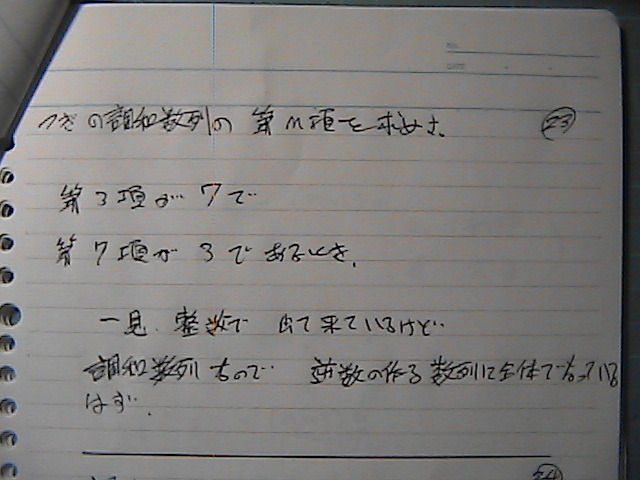 つぎの調和数列の 第n項を求めよ. 23
第3項が 7で
第7項が 3であるとき.
一見 整数で 出て来ているけど
調和数列なので 逆数の作る数列に全体でなっている
はず.
24